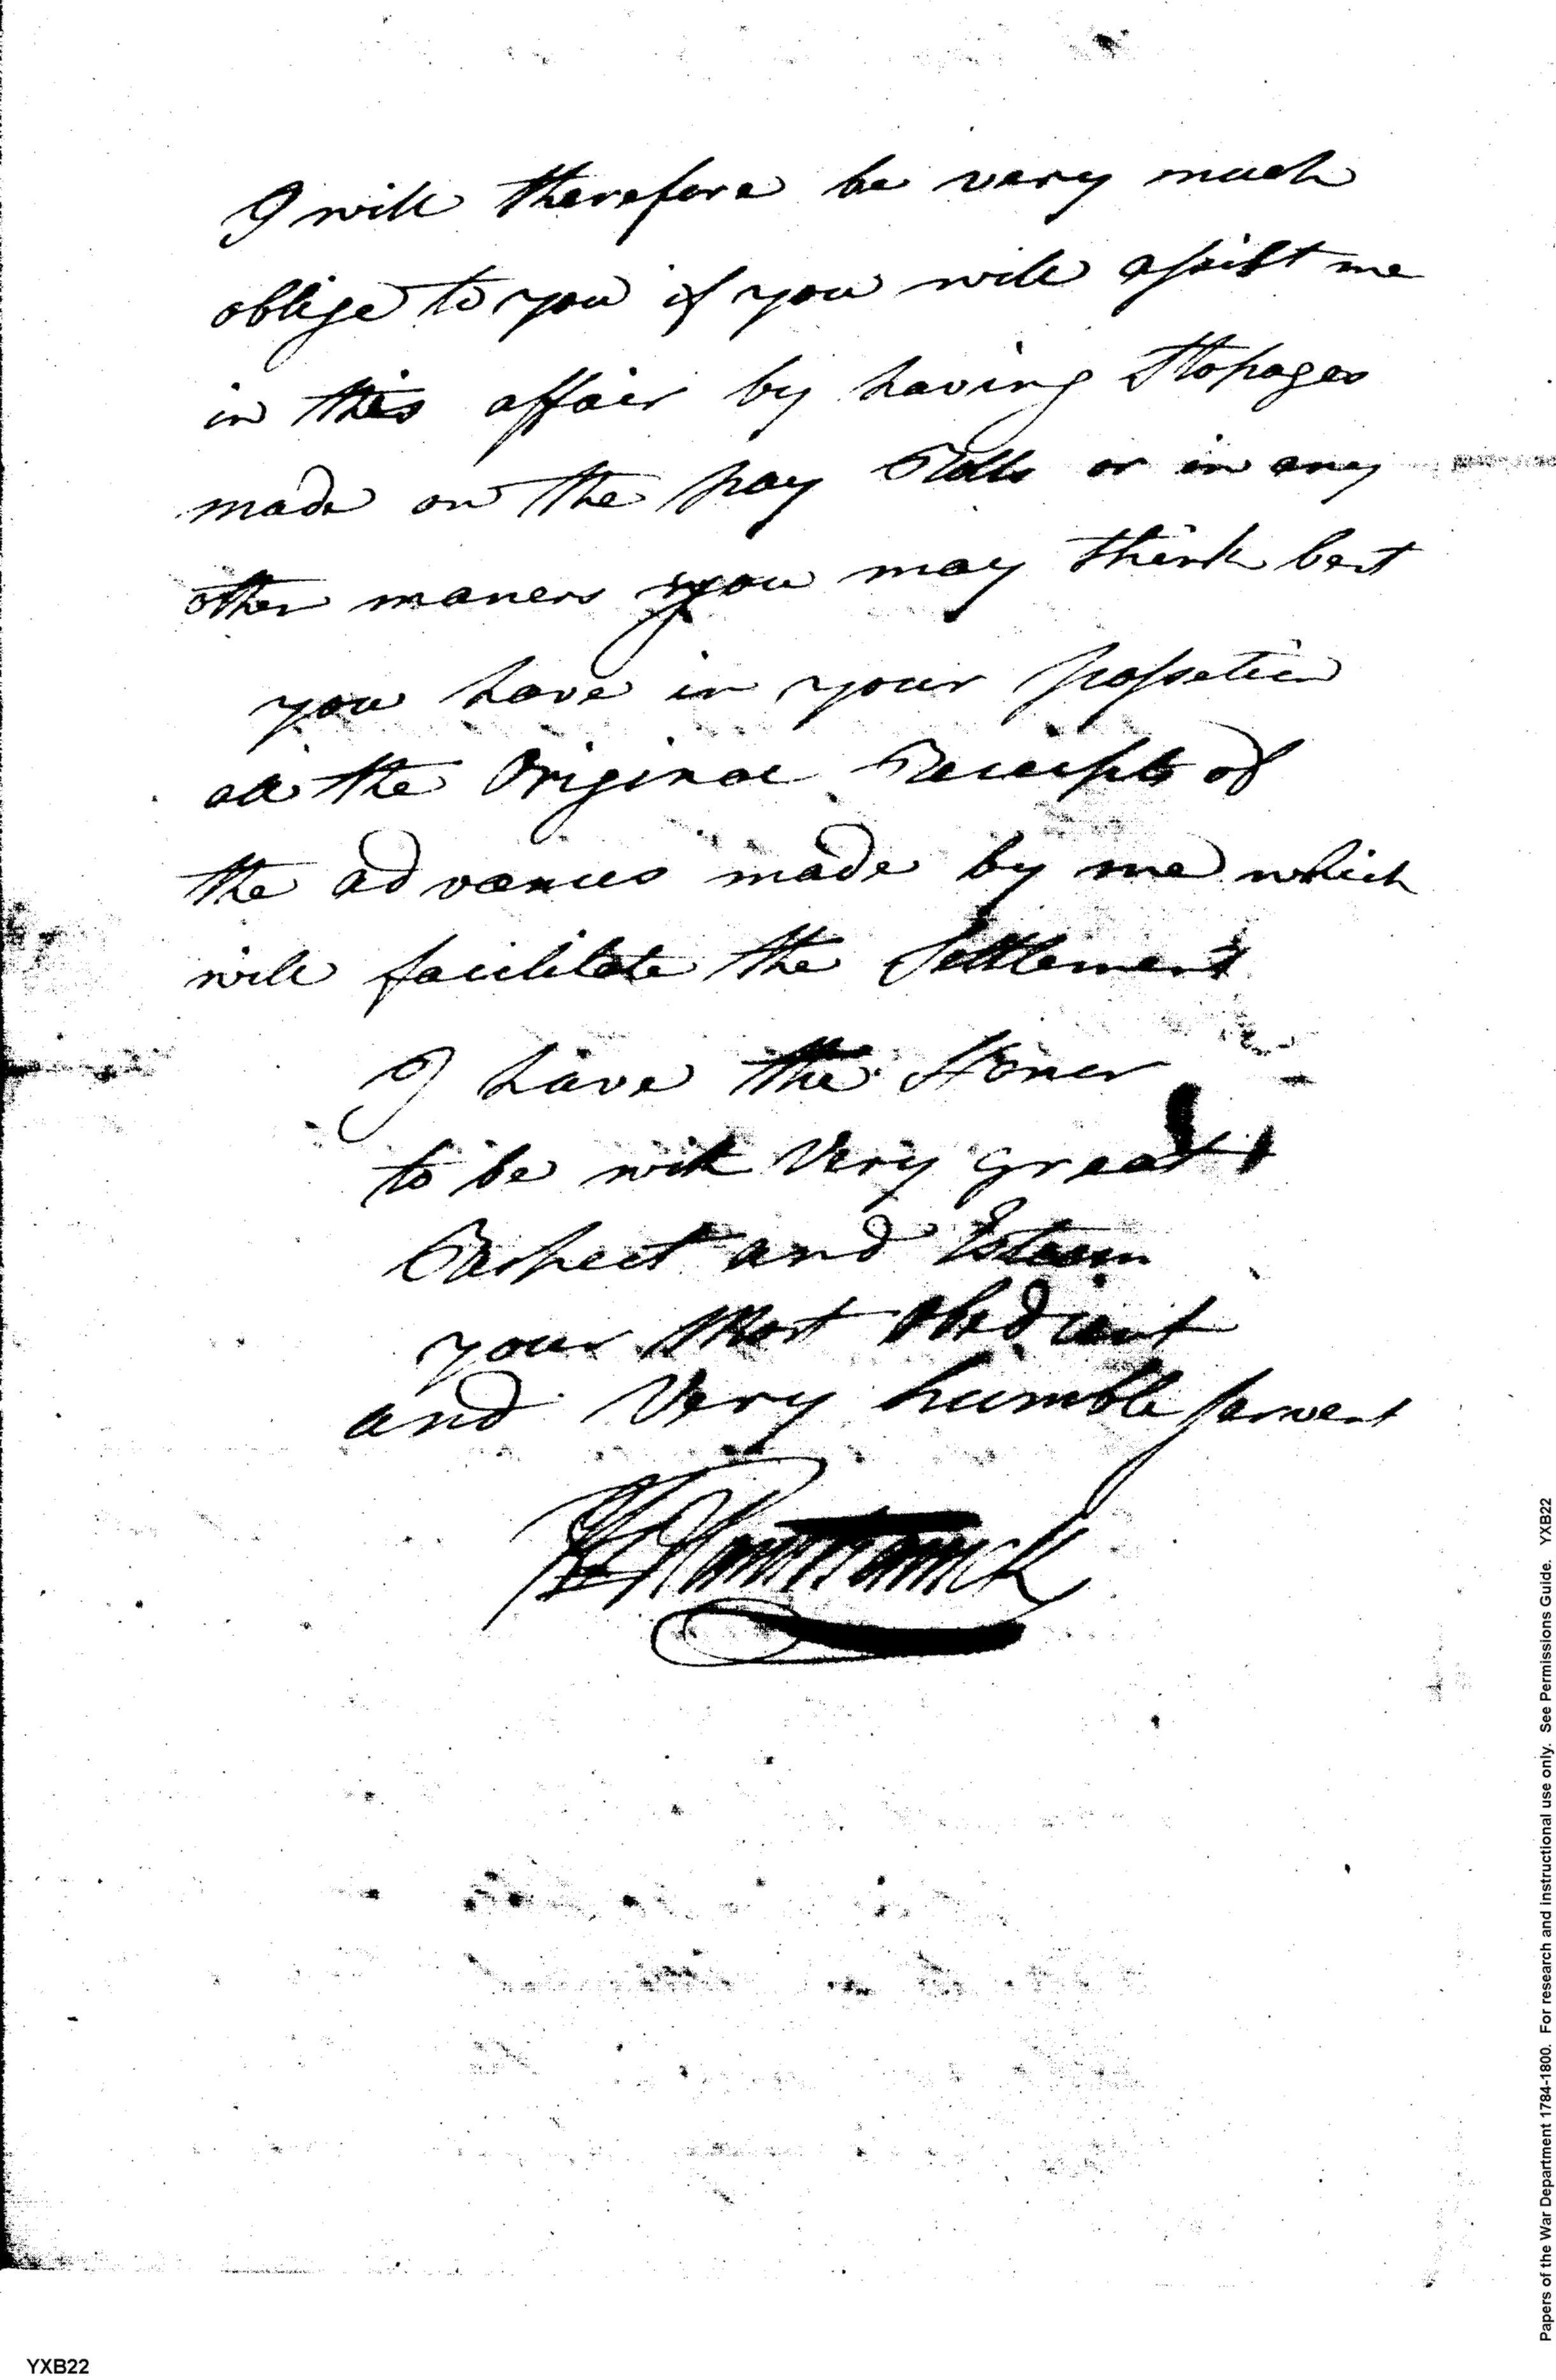 I will therefore be very much
oblige to you if you will assist me
in this affair by having Stopages
made on the pay Rolls or in any
other maners you may think best
you have in your possetion
all the Original Receipts of
the advances made by me which
will facilitate the Settlement
I have the Honor
to be with Very great
Respect and Esteem
your Most obedient
and Very humble servent
Hamtramck
Papers of the War Department 1784-1800. For research and instructional use only. See Permissions Guide. YXB22
YXB22